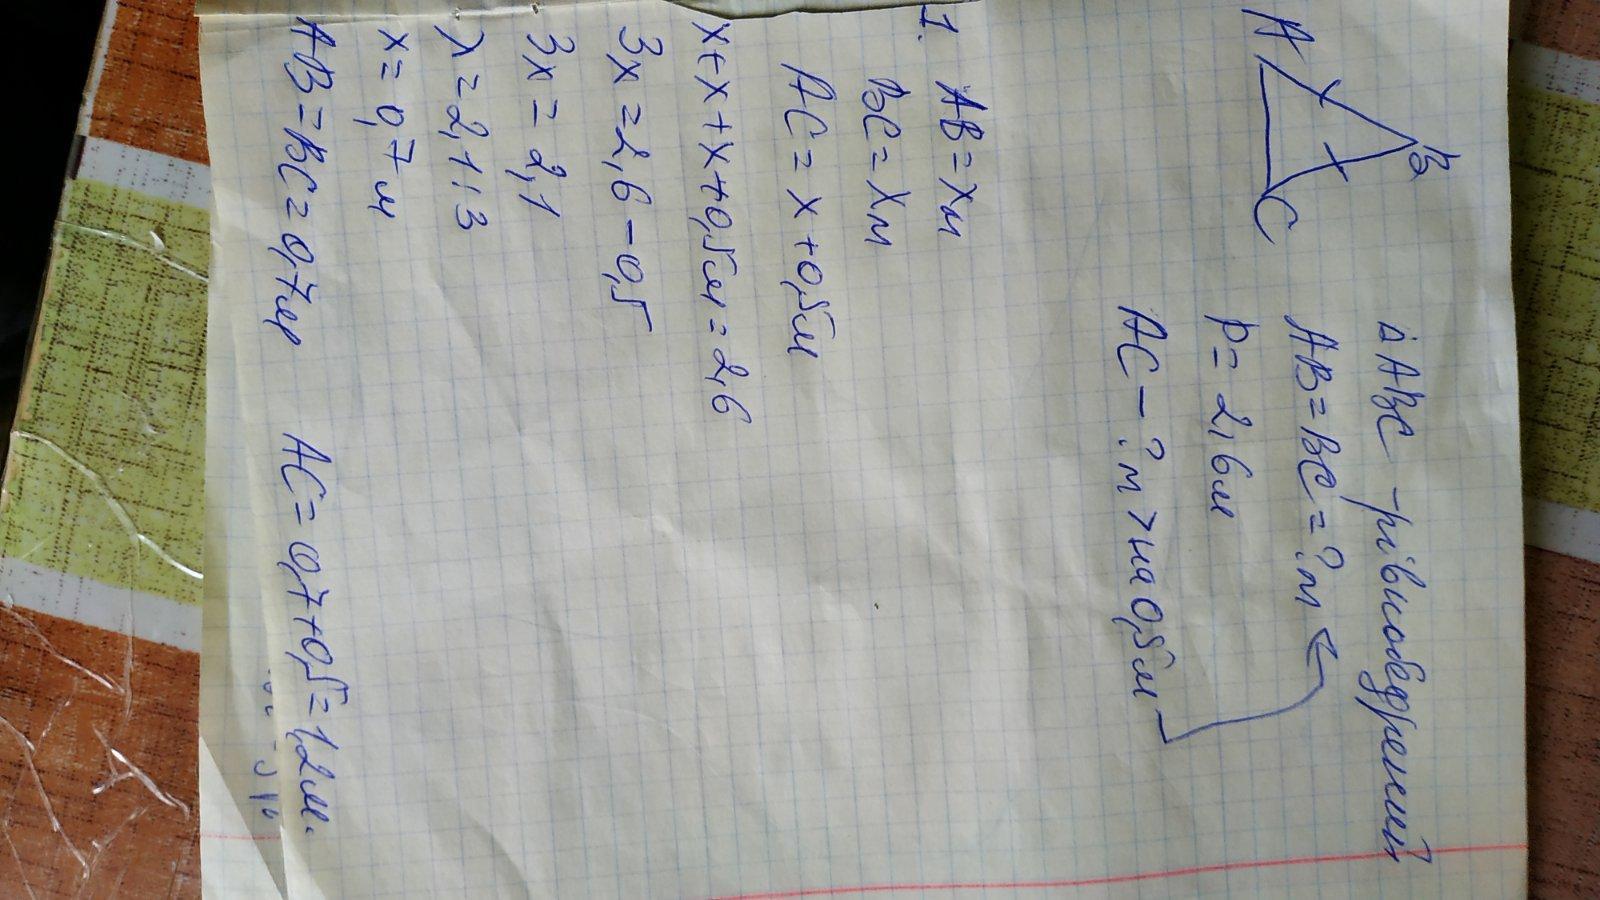 B
A
C
▵ABC - рівнобедрений
AB=BC=?м
P=2,6м
AC-?м>на 0,5м
1. AB=xм
BC=xм
AC=x+0,5м
x+x+x+0,5м=2,6
3x=2,6-0,5
3x=2,1
x=2,1:3
x=0,7м
AB=BC=0,7м AC=0,7+0,5=1,2м.